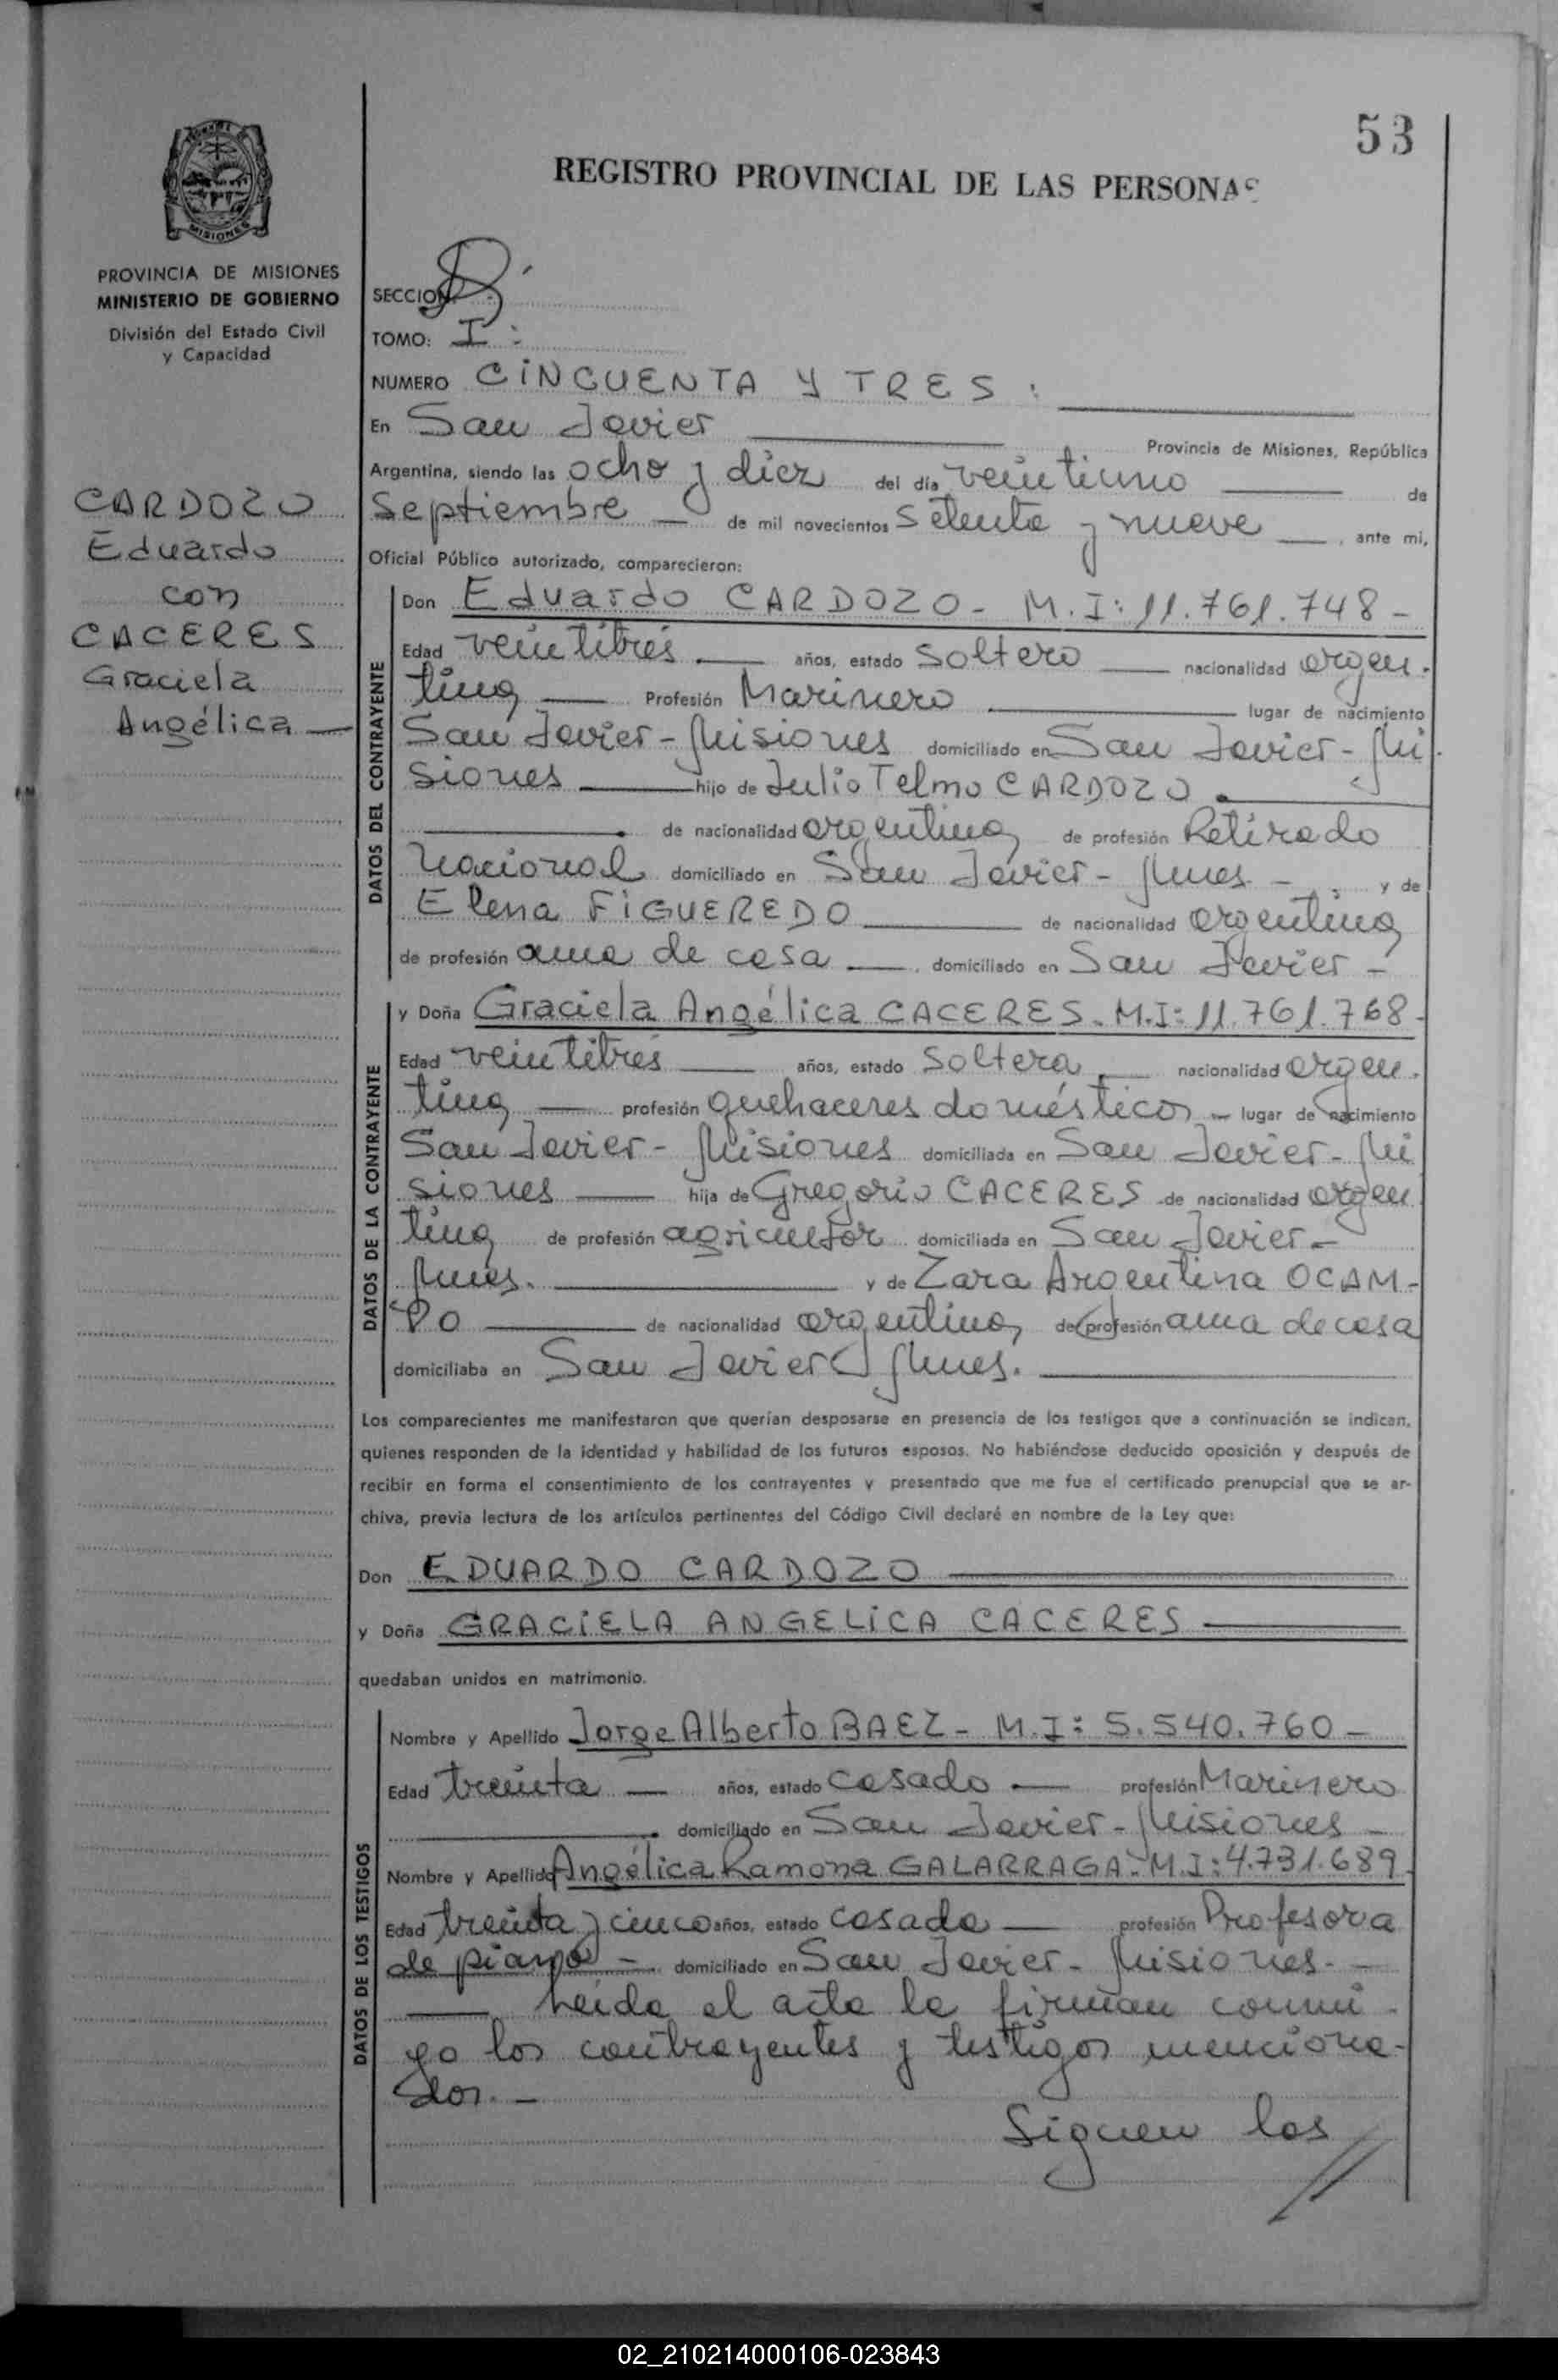 53
REGISTRO PROVINCIAL DE LAS PERSONAS
MISIONES
PROVINCIA DE MISIONES
MINISTERIO DE GOBIERNO
División del Estado Civil
y Capacidad
CARDOZO
Eduardo
con
CACERES
Graciela
Angélica —
SECCION:
TOMO: I :
NUMERO CINCUENTA Y TRES :
En San Javier — Provincia de Misiones, República
Argentina, siendo las ocho y diez del día veintiuno — de
Septiembre — de mil novecientos Setenta y nueve —, ante mi,
Oficial Público autorizado, comparecieron:
DATOS DEL CONTRAYENTE
Don Eduardo CARDOZO - M.I: 11.761.748 -
Edad veintitres — años, estado Soltero — nacionalidad argen-
tina — Profesión Marinero — lugar de nacimiento
San Javier - Misiones domiciliado en San Javier - Mi
siones — hijo de Julio Telmo CARDOZO . —
— . de nacionalidad argentina de profesión Retirado
Nacional domiciliado en San Javier - Mnes - . y de
Elena FIGUEREDO — de nacionalidad argentina
de profesión ama de casa — . domiciliado en San Javier -
DATOS DE LA CONTRAYENTE
y Doña Graciela Angélica CACERES - M.I: 11.761.768 -
Edad veintitres — años, estado Soltera — nacionalidad argen-
tina — profesión quehaceres domésticos - lugar de nacimiento
San Javier - Misiones domiciliada en San Javier - Mi
siones — hija de Gregorio CACERES de nacionalidad argen
tina de profesión agricultor domiciliada en San Javier -
Mnes. — y de Zara Argentina OCAM-
PO — de nacionalidad argentina de profesión ama de casa
domiciliaba en San Javier Mnes. —
Los comparecientes me manifestaron que querían desposarse en presencia de los testigos que a continuación se indican,
quienes responden de la identidad y habilidad de los futuros esposos. No habiéndose deducido oposición y después de
recibir en forma el consentimiento de los contrayentes y presentado que me fue el certificado prenupcial que se ar-
chiva, previa lectura de los artículos pertinentes del Código Civil declaré en nombre de la Ley que:
Don EDUARDO CARDOZO —
y Doña GRACIELA ANGELICA CACERES —
quedaban unidos en matrimonio.
DATOS DE LOS TESTIGOS
Nombre y Apellido Jorge Alberto BAEZ - M.I: 5.540.760 -
Edad treinta — años, estado casado — profesión Marinero
— . domiciliado en San Javier - Misiones -
Nombre y Apellido Angélica Ramona GALARRAGA - M.I: 4.731.689
Edad treinta y cinco años, estado casada — profesión Profesora
de piano - domiciliado en San Javier - Misiones. -
— Leída el acta la firman conmi-
go los contrayentes y testigos menciona-
dos. -
Siguen las //
02_210214000106-023843